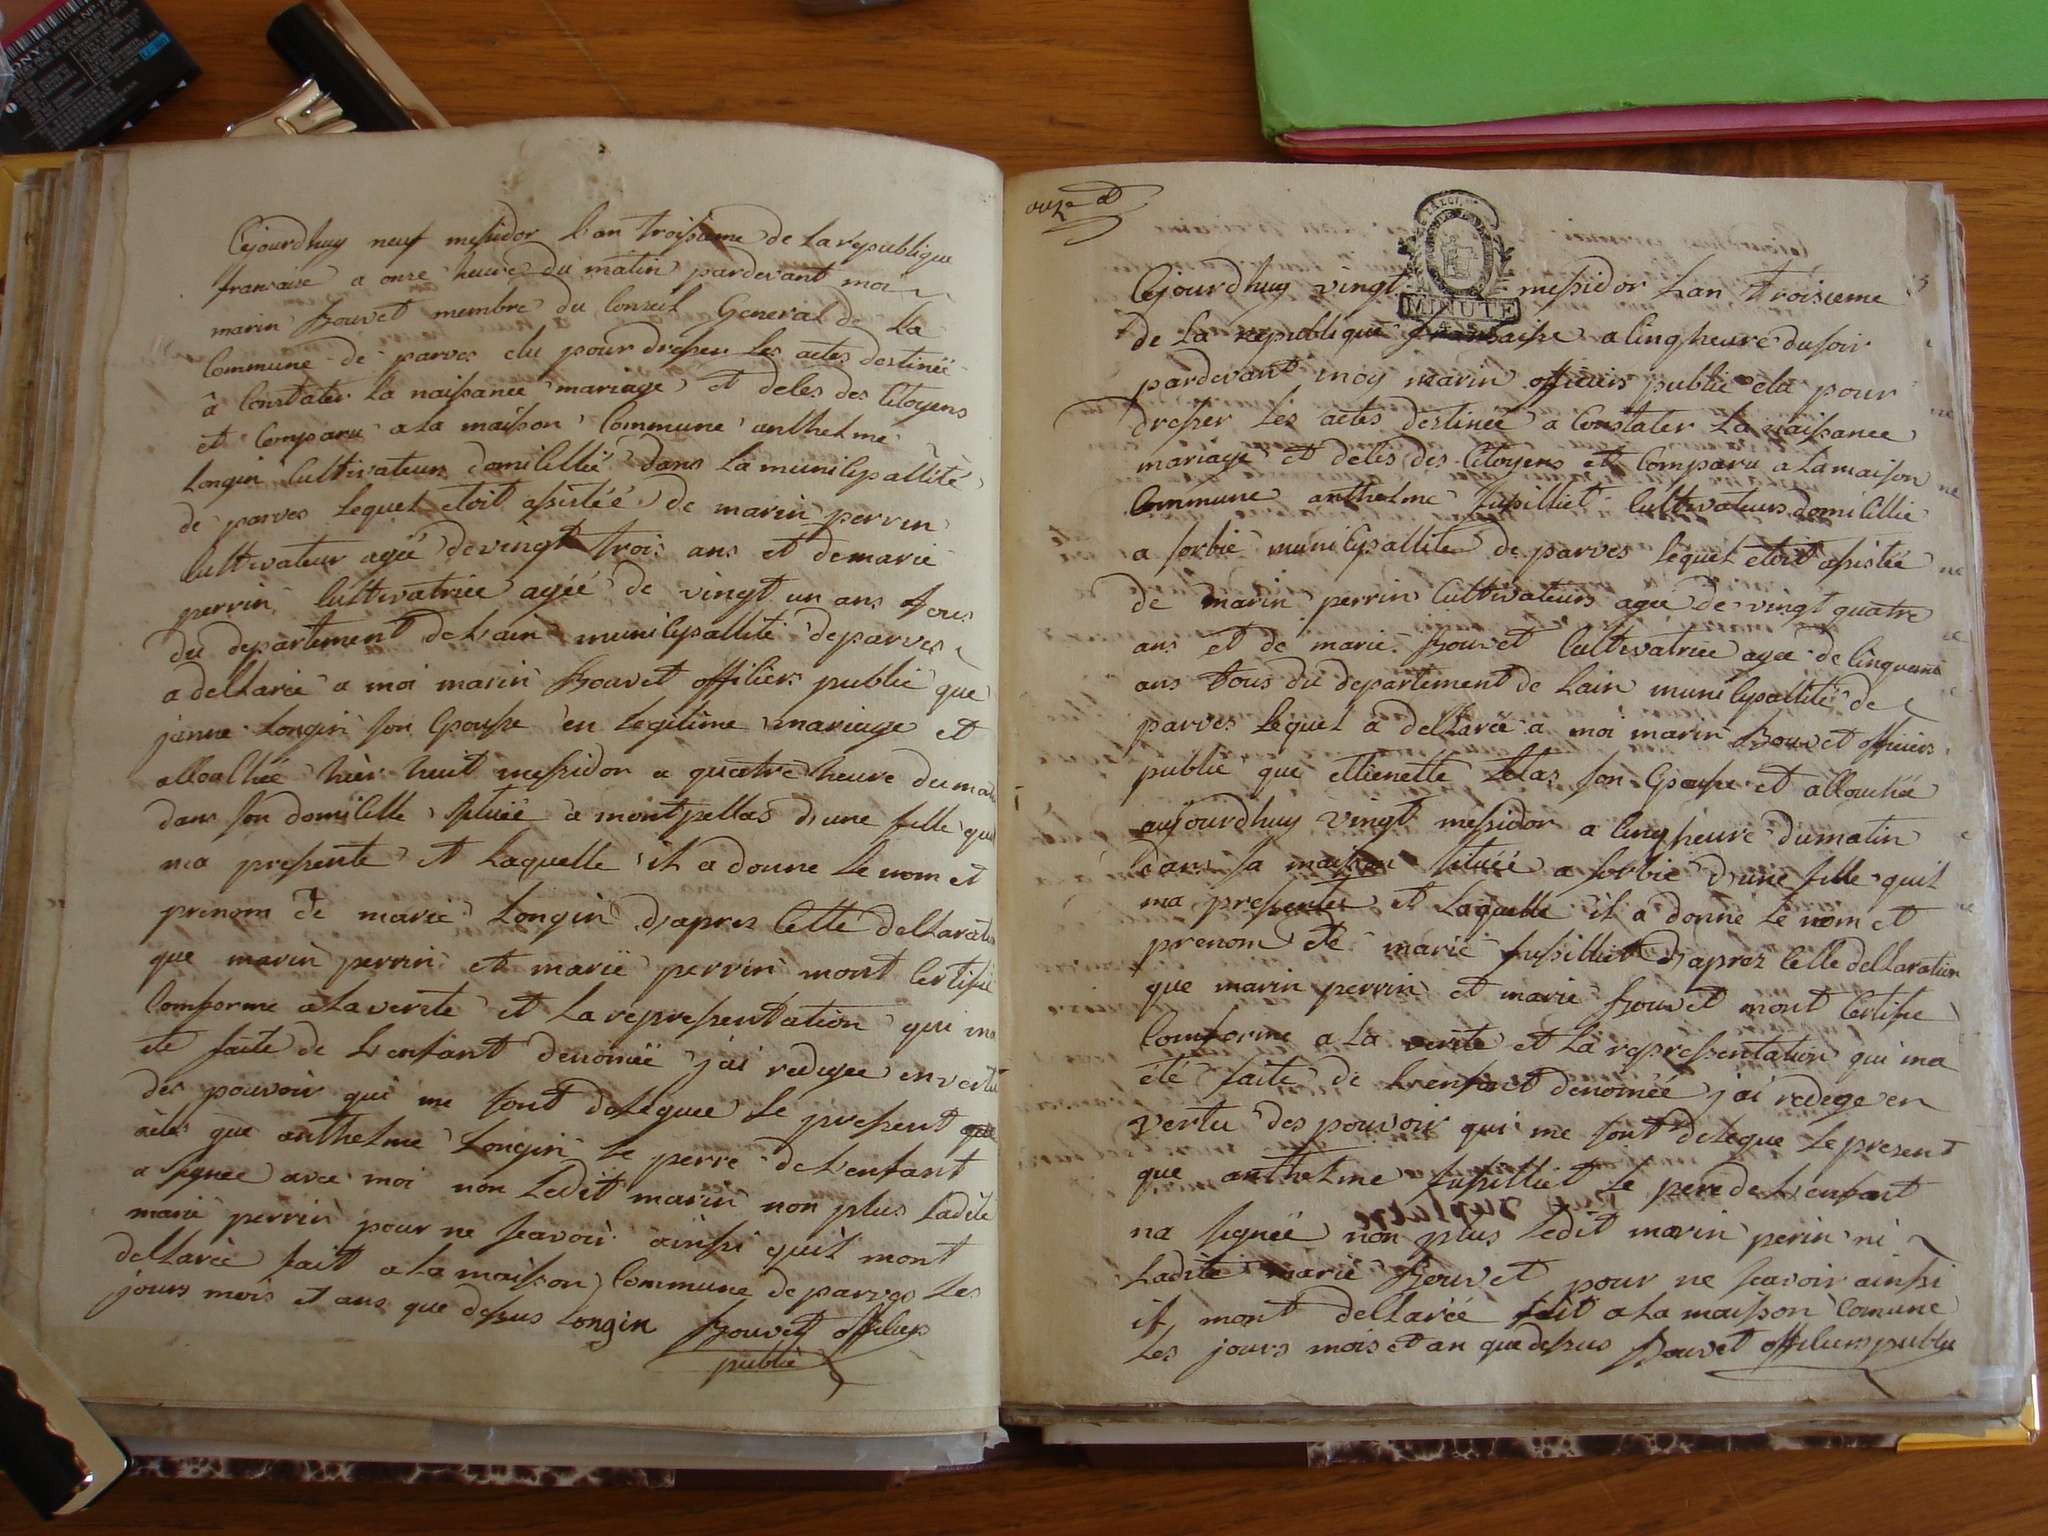 Cejourdhuy neuf messidor Lan troisieme de La republique
francaise a onze heure du matin pardevant moi
marin Bouvet membre du Conseil General de La
Commune de parves elu pour dresser Les actes destineé
à Constater La naissance mariage et deles des Citoyens
et Comparu a La maison Commune anthelme
Longin Cultivateur domicillié dans La municipallité
de parves Lequel etoit assisteé de marin perrin
Cultivateur ageé de vingt trois ans et de marie
perrin Cultivatrice ageé de vingt un ans tous
du departement de Lain municipallité de parves
a dellareé a moi marin Bouvet officiers public que
janne Longin son Epousse en Legitime mariage et
allouchée hier huit messidor a quatre heure du
dans son domicille situeé a montpellas d'une fille
ma presenté et Laquelle il a donne Le nom et
prenom de marie Longin d'apres Cette dellaration
que marin perrin et marie perrin mont Certifié
Comforme a La verite et La representation qui ma
ete faite de L'enfant denomeé j'ai redigee en vertu
des pouvoir qui me sont delegue Le present que
que anthelme Longin Le perre de L'enfant
a signee avec moi non Ledit marin non plus Ladite
marie perrin pour ne scavoir ainssi quil mont
dellareé fait a La maison Commune de parves Les
jours mois et ans que dessus Longin Bouvet officiers
public
onze
MINUTE
Cejourdhuy vingt messidor Lan troisieme
de La republique francaise a Cinq heure du soir
pardevant moy marin officiers public elu pour
dresser Les actes destineé a Constater La naissance
mariage et deles des Citoyens et Comparu a La maison
Commune anthelme fusilliet Cultivateurs domicillie
a sorbie municipallité de parves Lequel etoit assisteé
de marin perrin Cultivateurs ageé de vingt quatre
ans et de marie Bouvet Cultivatrice ageé de Cinquante
ans tous du departement de Lain municipallité de
parves Lequel a dellareé a moi marin Bouvet officiers
public que ettienette son Epouse et allouchée
aujourdhuy vingt messidor a Cinq heure du matin
dans sa maison situeé a sorbie d'une fille quil
ma presentée et Laquelle il a donne Le nom et
prenom de marie fusilliet d'apres Cette dellaration
que marin perrin et marie Bouvet mont Certifie
Comforme a La verite et La representation qui ma
été faite de L'enfant denomeé j'ai redege en
vertu des pouvoir qui me sont delegue Le present
que anthelme fusilliet Le pere de L'enfant
na signeé non plus Ledit marin perin ni
Ladite marie Bouvet pour ne scavoir ainssi
il mont dellareé fait a La maison Comune
Les jours mois et an que dessus Bouvet officiers public